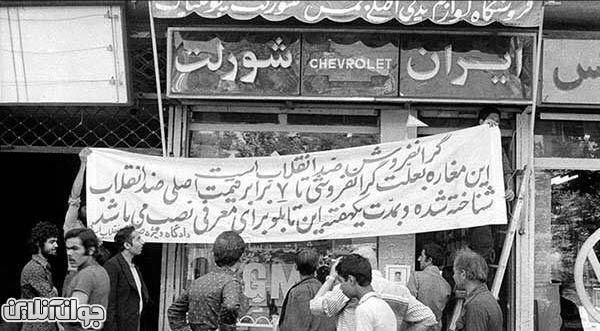 فروشگاه لوازم یدکی اصلی جمس شورلت
ایران CHEVROLET شورلت
گرانفروش ضد انقلاب است
این مغازه بعلت گرانفروشی تا ۷ برابر قیمت اصلی ضد انقلاب
شناخته شده و بمدت یکهفته این تابلو برای معرفی نصب می باشد
دادگاه ویژه
GM
جوان‌آنلاین